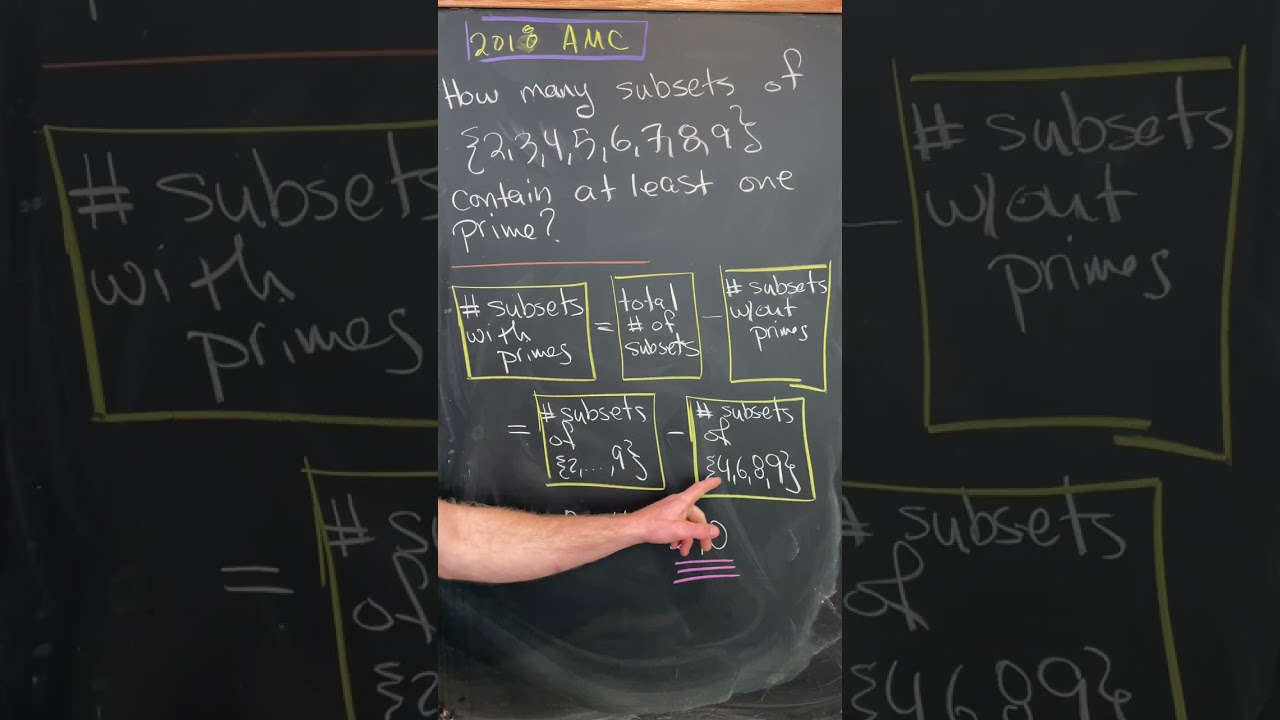 2018 AMC
How many subsets of
{2,3,4,5,6,7,8,9}
contain at least one
prime?
# subsets
with
primes
=
total
# of
subsets
-
# subsets
w/out
primes
=
# subsets
of
{2,...,9}
-
# subsets
of
{4,6,8,9}